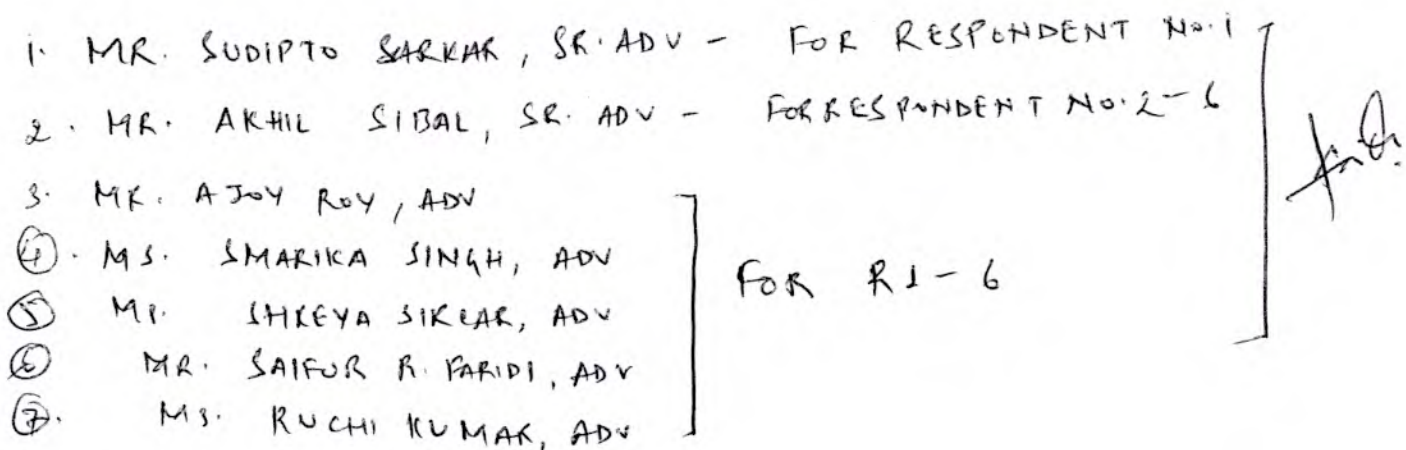 1. MR. SUDIPTO SARKAR, SR. ADV - FOR RESPONDENT No. 1
2. MR. AKHIL SIBAL, SR. ADV - FOR RESPONDENT No. 2-6
3. MR. AJOY ROY, ADV
4. MS. SMARIKA SINGH, ADV
FOR R1-6
5. MS. SHREYA SIRCAR, ADV
6. MR. SAIFUR R. FARIDI, ADV
7. MS. RUCHI KUMAR, ADV